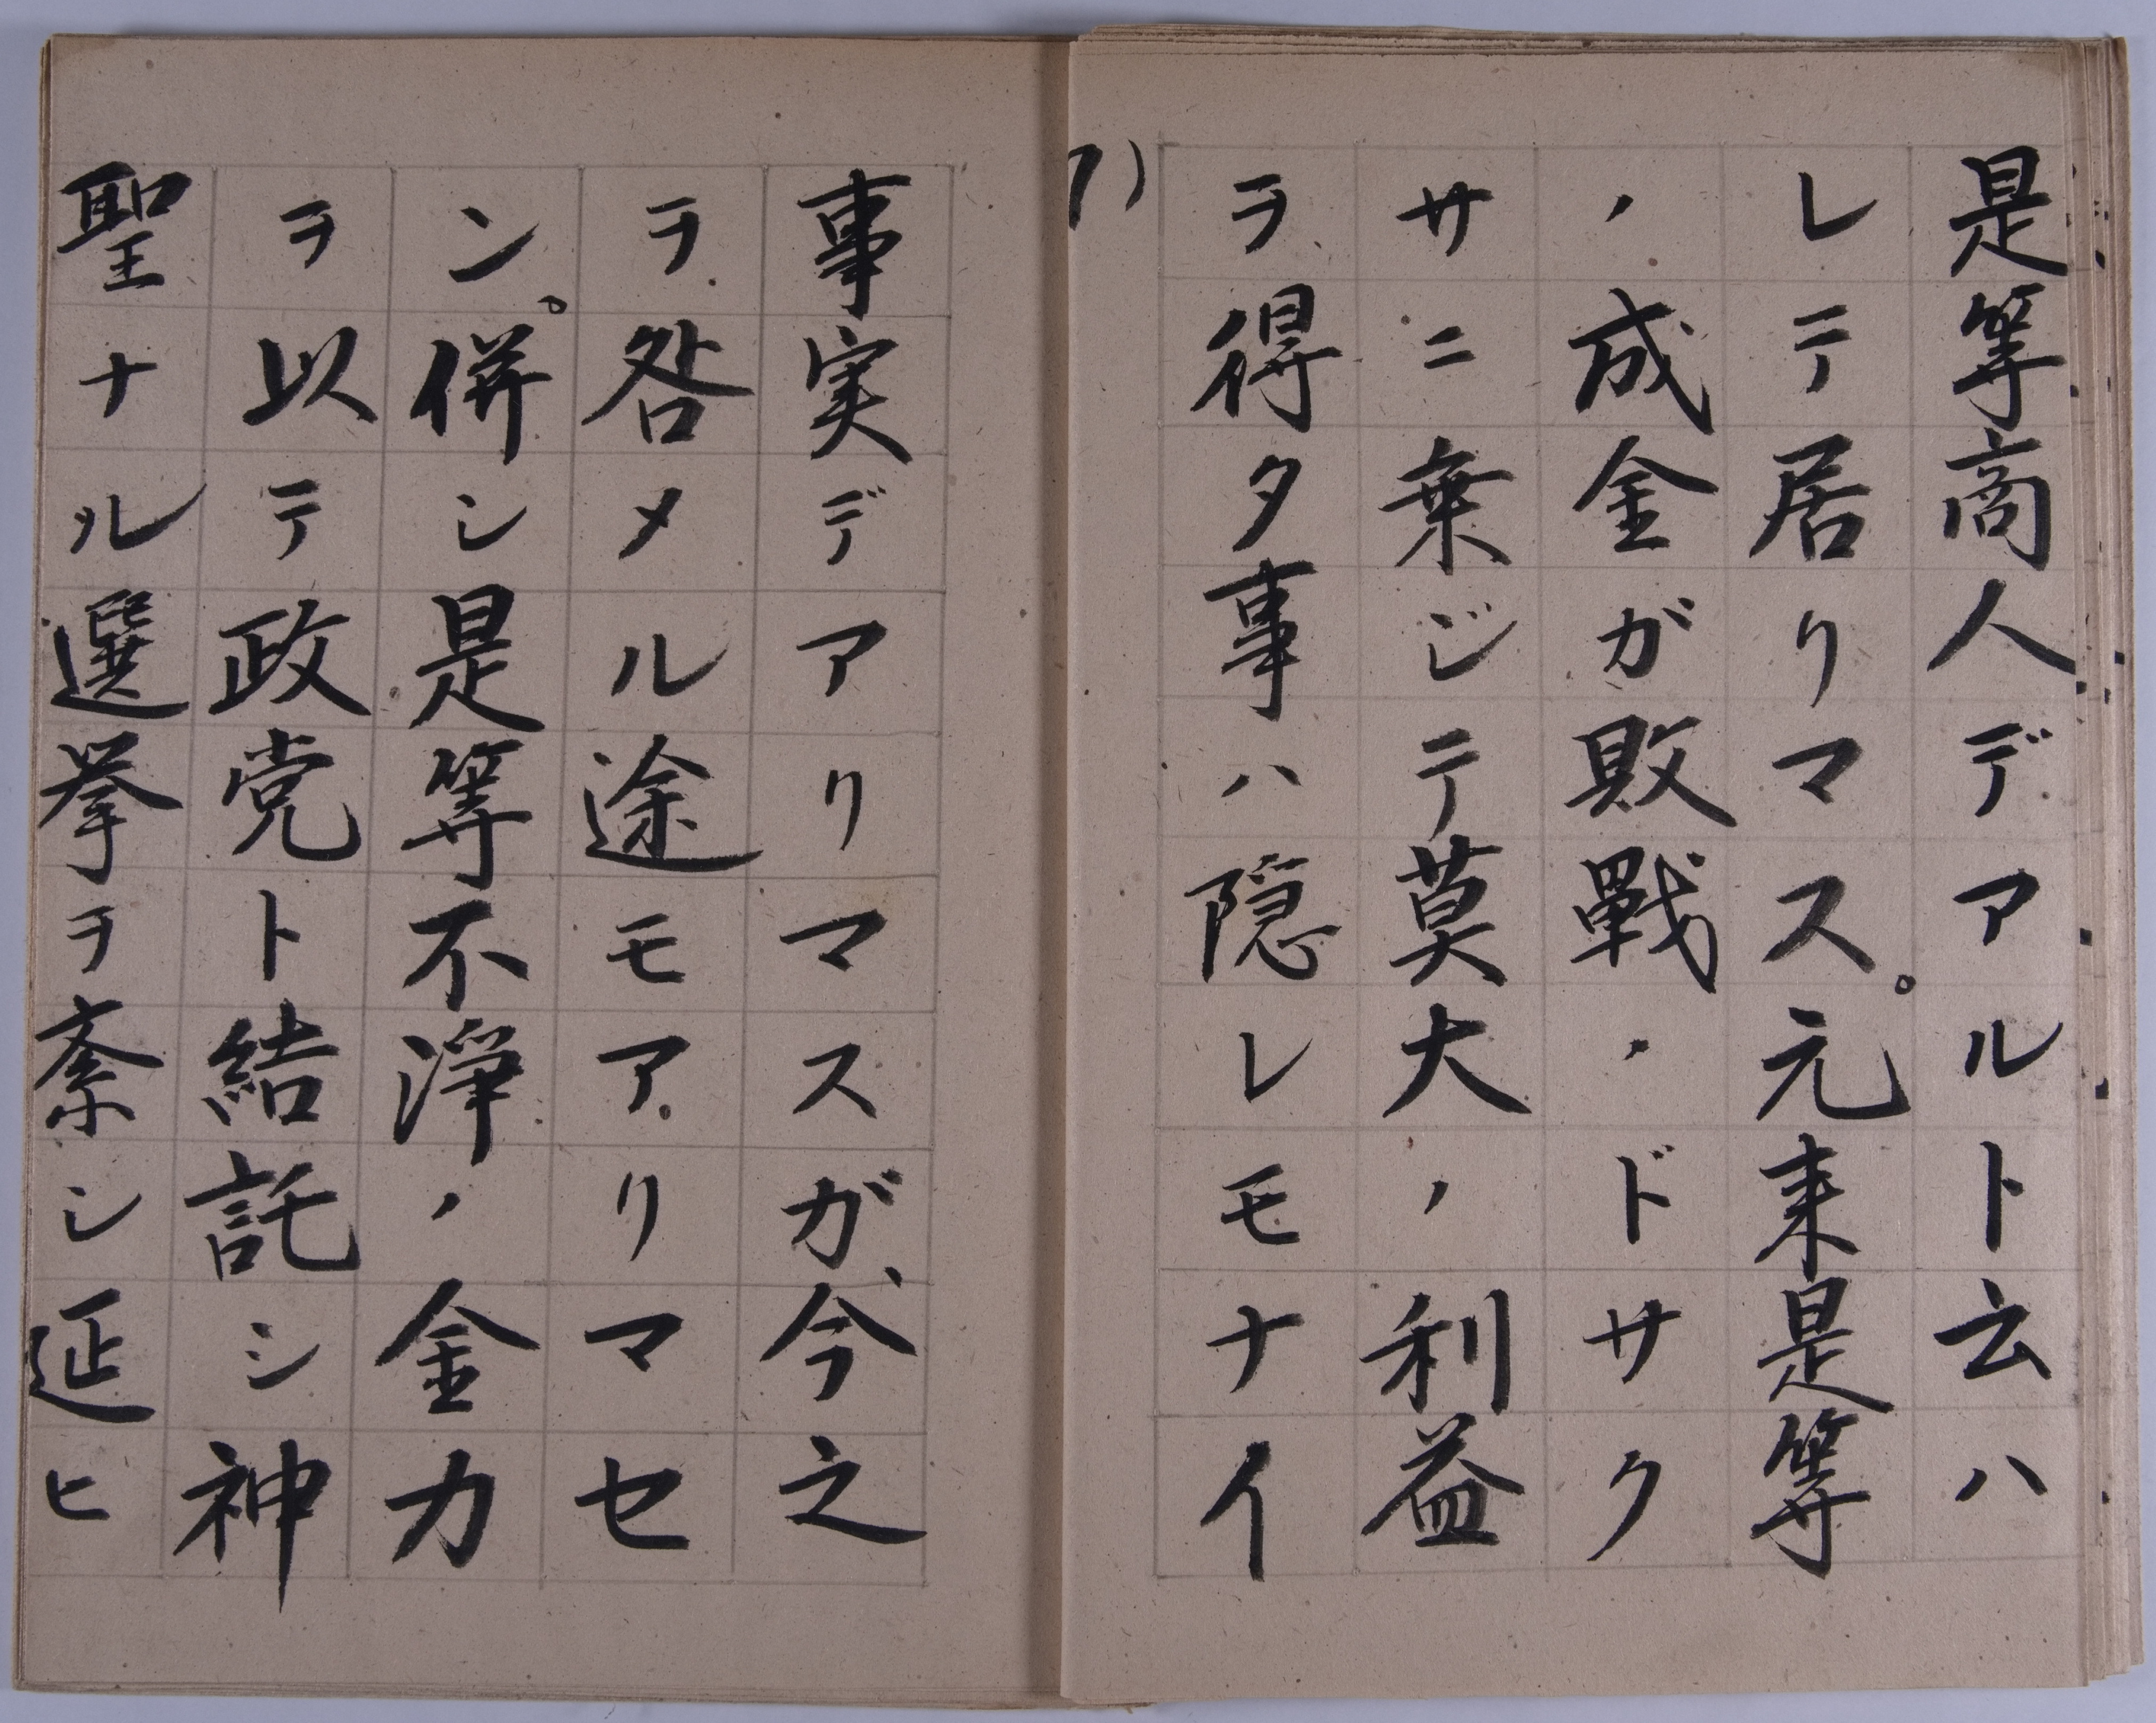 是等商人デアルト云ハ
レテ居リマス。元来是等
ノ成金ガ敗戦ノドサク
サニ乗ジテ莫大ノ利益
ヲ得タ事ハ隠レモナイ
事実デアリマスガ、今之
ヲ咎メル途モアリマセ
ン。併シ是等不浄ノ金力
ヲ以テ政党ト結託シ神
聖ナル選挙ヲ紊シ延ヒ